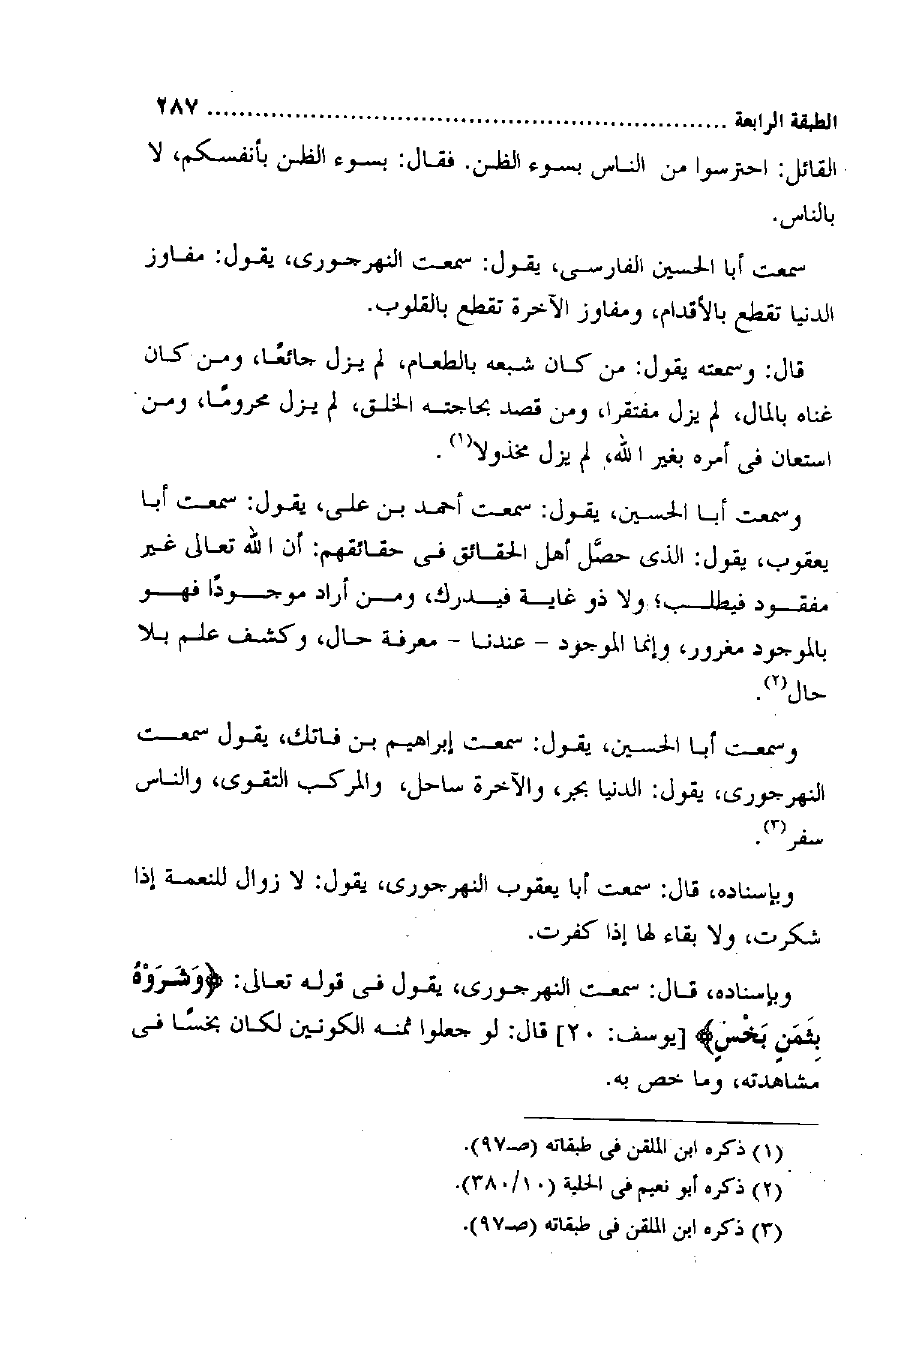 الطبقة الرابعة ................................................................ ٢٨٧
القائل: احترسوا من الناس بسوء الظن. فقال: بسوء الظن بأنفسكم، لا
بالناس.
سمعت أبا الحسين الفارسى، يقول: سمعت النهرجورى، يقول: مفاوز
الدنيا تقطع بالأقدام، ومفاوز الآخرة تقطع بالقلوب.
قال: وسمعته يقول: من كان شبعه بالطعام، لم يزل جائعًا، ومن كان
غناه بالمال، لم يزل مفتقرا، ومن قصد بحاجته الخلق، لم يزل محرومًا، ومن
استعان فى أمره بغير الله، لم يزل مخذولا(١).
وسمعت أبا الحسين، يقول: سمعت أحمد بن على، يقول: سمعت أبا
يعقوب، يقول: الذى حصَّل أهل الحقائق فى حقائقهم: أن الله تعالى غير
مفقود فيطلب؛ ولا ذو غاية فيدرك، ومن أراد موجودًا فهو
بالموجود مغرور، وإنما الموجود - عندنا - معرفة حال، وكشف علم بلا
حال(٢).
وسمعت أبا الحسين، يقول: سمعت إبراهيم بن فاتك، يقول سمعت
النهرجورى، يقول: الدنيا بحر، والآخرة ساحل، والمركب التقوى، والناس
سفر(٣).
وبإسناده، قال: سمعت أبا يعقوب النهرجورى، يقول: لا زوال للنعمة إذا
شكرت، ولا بقاء لها إذا كفرت.
وبإسناده، قال: سمعت النهرجورى، يقول فى قوله تعالى: ﴿وَشَرَوْهُ
بِثَمَنٍ بَخْسٍ﴾ [يوسف: ٢٠] قال: لو جعلوا ثمنه الكونين لكان بخسًا فى
مشاهدته، وما خص به.
(١) ذكره ابن الملقن فى طبقاته (صـ٩٧).
(٢) ذكره أبو نعيم فى الحلية (٣٨٠/١٠).
(٣) ذكره ابن الملقن فى طبقاته (صـ٩٧).